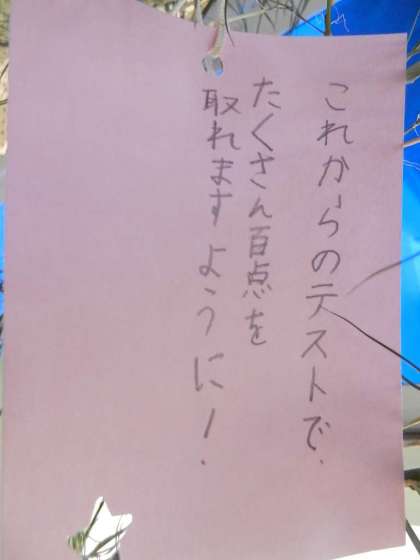 これからのテストで、
たくさん百点を
取れますように！